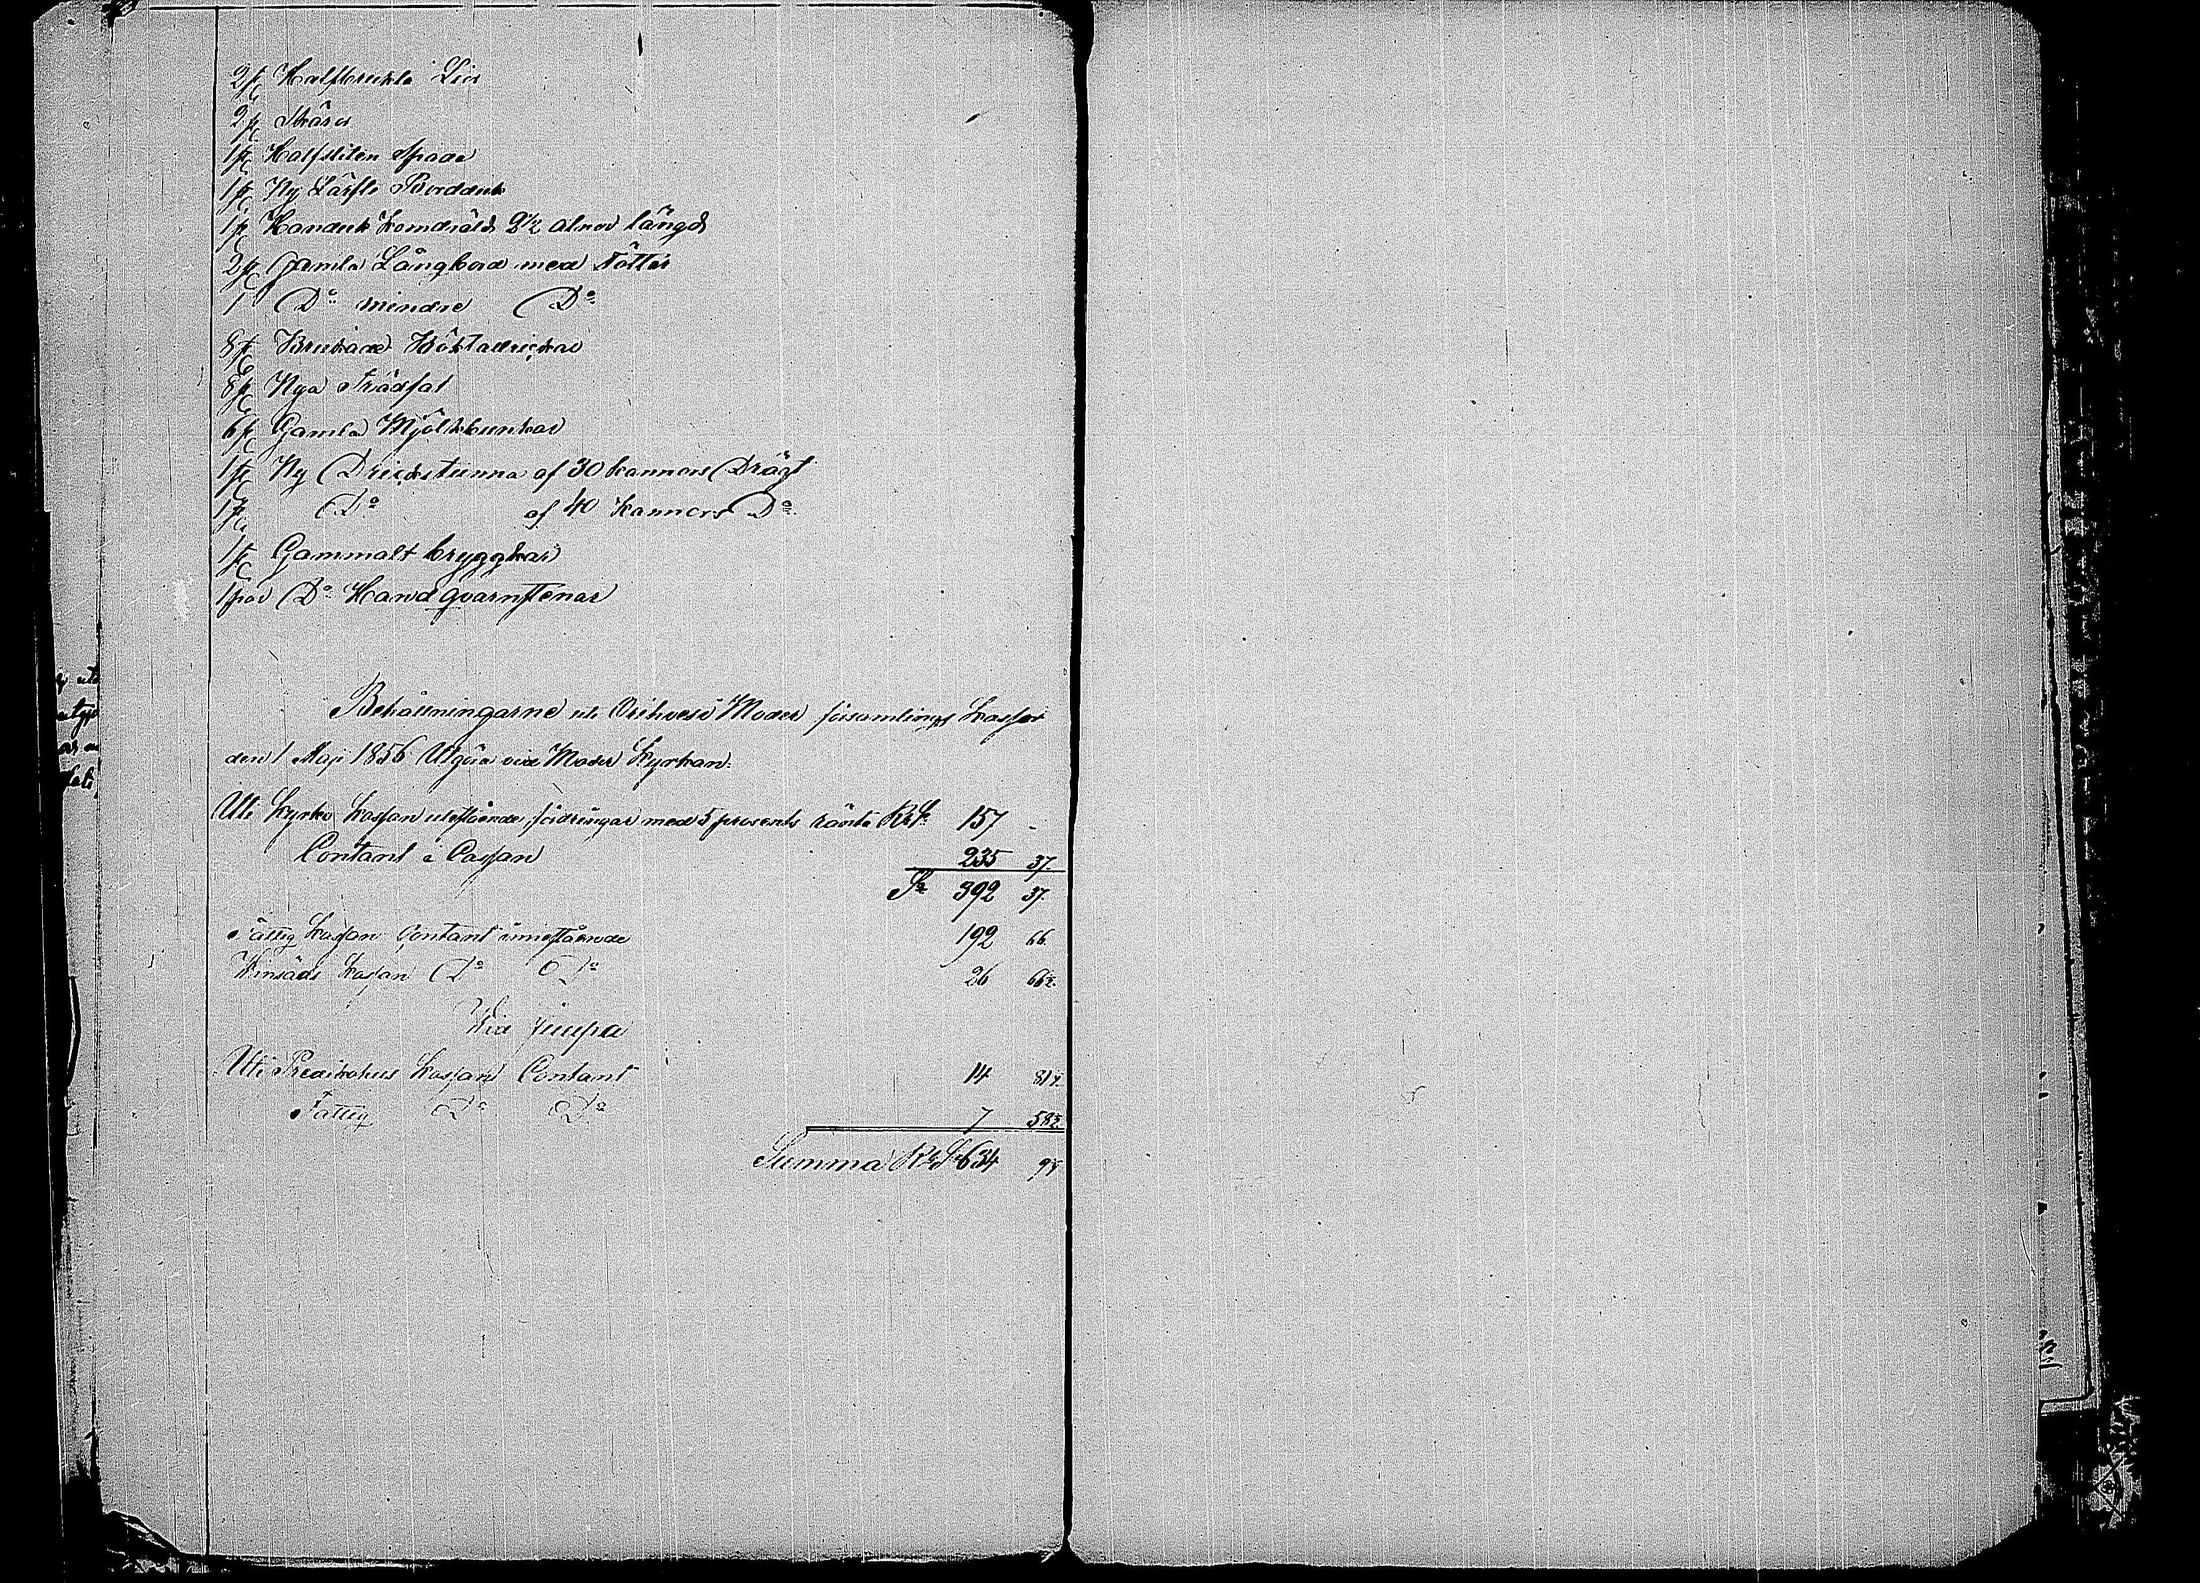 2 pc Halfbrukta Liar
2 pc Skäror
1 pc Halfsliten Spade
1 pc Ny Lärfts Bordduk
1 pc Handuk komdräld 2½ alnar längd
2 pc Gamla Långbord med Fötter
1 Do mindre Do
8 pc Brukade Kötttallrickar
8 pc Nya Trädfat
6 pc Gamla Mjölkbunkar
1 pc Ny Drickstunna af 30 kannors Drägt
1 pc Do af 40 kannors Do
1 pc Gammalt bryggkar
1 par Do Handqvarnstenar
Behållningarne uti Orihvesi Moder församlings Kassor
den 1 Maji 1856 Utgöra vid Moder Kyrkan.
Uti Kyrko Kassan utestående fordringar med 5 prosents ränta Rb Sr 157 -
Contant i Cassan 235 37.
Sa 392 37.
Fattig Kassan Contant innestående 192 66.
Vinsäds Kassan Do Do 26 66½.
Vid Juupa
Uti Predikohus Kassan Contant 14
Fattig Do Do 7 58½
Summa Rb Sr 634